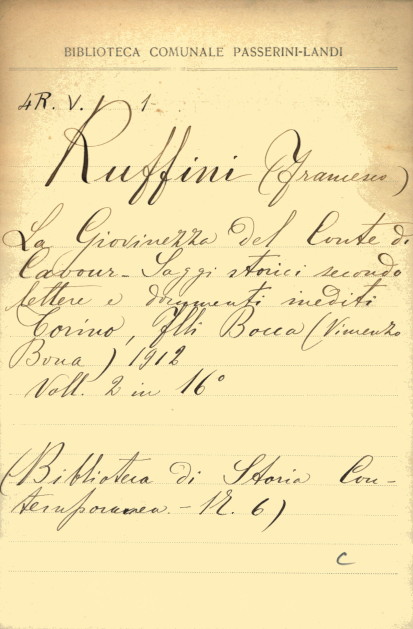 BIBLIOTECA COMUNALE PASSERINI-LANDI
4R. V. 1
Ruffini (Francesco)
La Giovinezza del Conte di
Cavour - Saggi storici secondo
lettere e documenti inediti
Torino, Flli Bocca (Vincenzo
Bona) 1912
Voll. 2 in 16°
(Biblioteca di Storia Con-
temporanea. - N. 6)
C